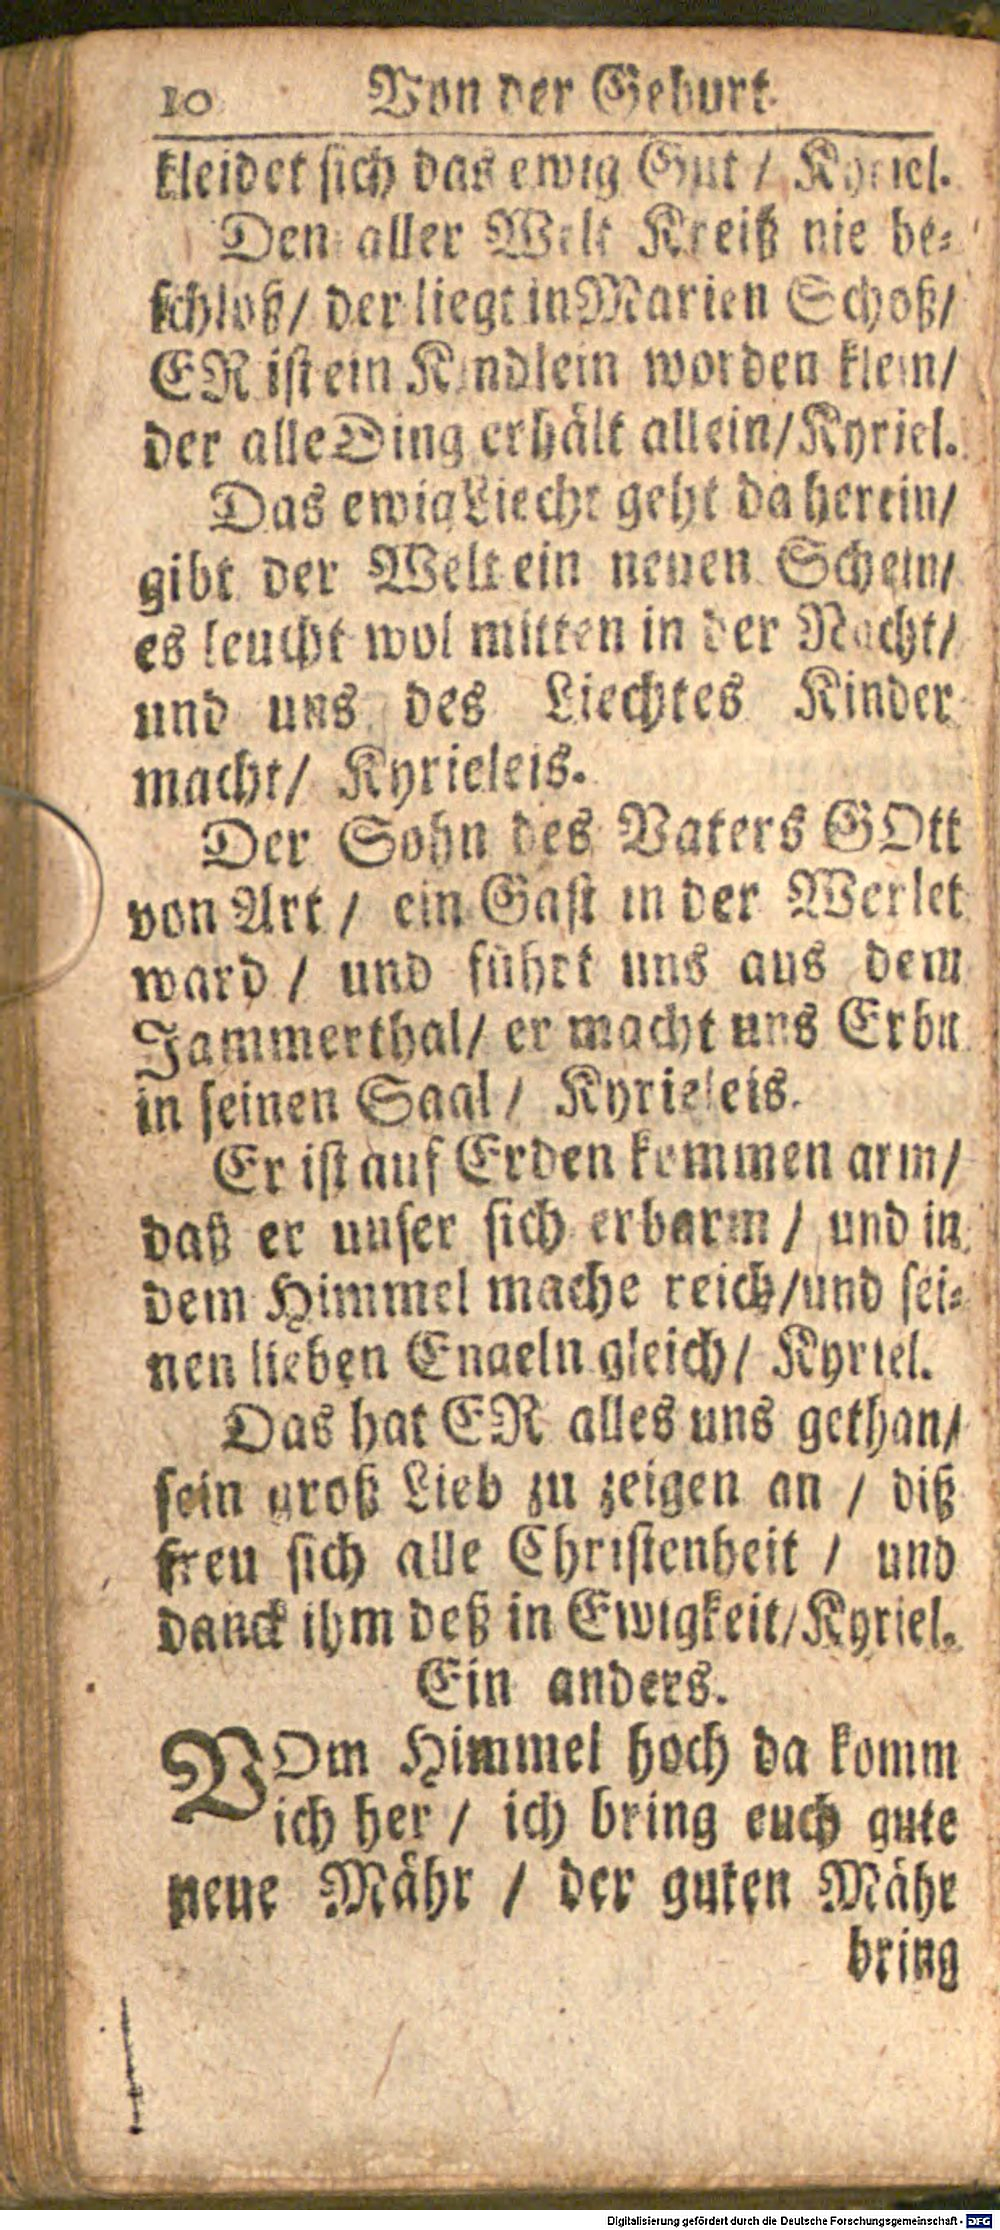 10 Von der Geburt.
kleidet sich das ewig Gut / Kyriel.
Den aller Welt Kreiß nie be-
schloß / der liegt in Marien Schoß /
ER ist ein Kindlein worden klein /
der alle Ding erhält allein / Kyriel.
Das ewig Liecht geht da herein /
gibt der Welt ein neuen Schein /
es leucht wol mitten in der Nacht /
und uns des Liechtes Kinder
macht / Kyrieleis.
Der Sohn des Vaters GOtt
von Art / ein Gast in der Werlet
ward / und führt uns aus dem
Jammerthal / er macht uns Erbn
in seinen Saal / Kyrieleis.
Er ist auf Erden kommen arm /
daß er unser sich erbarm / und in
dem Himmel mache reich / und sei-
nen lieben Engeln gleich / Kyriel.
Das hat ER alles uns gethan /
sein groß Lieb zu zeigen an / diß
freu sich alle Christenheit / und
danck ihm deß in Ewigkeit / Kyriel.
Ein anders.
VOm Himmel hoch da komm
ich her / ich bring euch gute
neue Mähr / der guten Mähr
bring
Digitalisierung gefördert durch die Deutsche Forschungsgemeinschaft - DFG